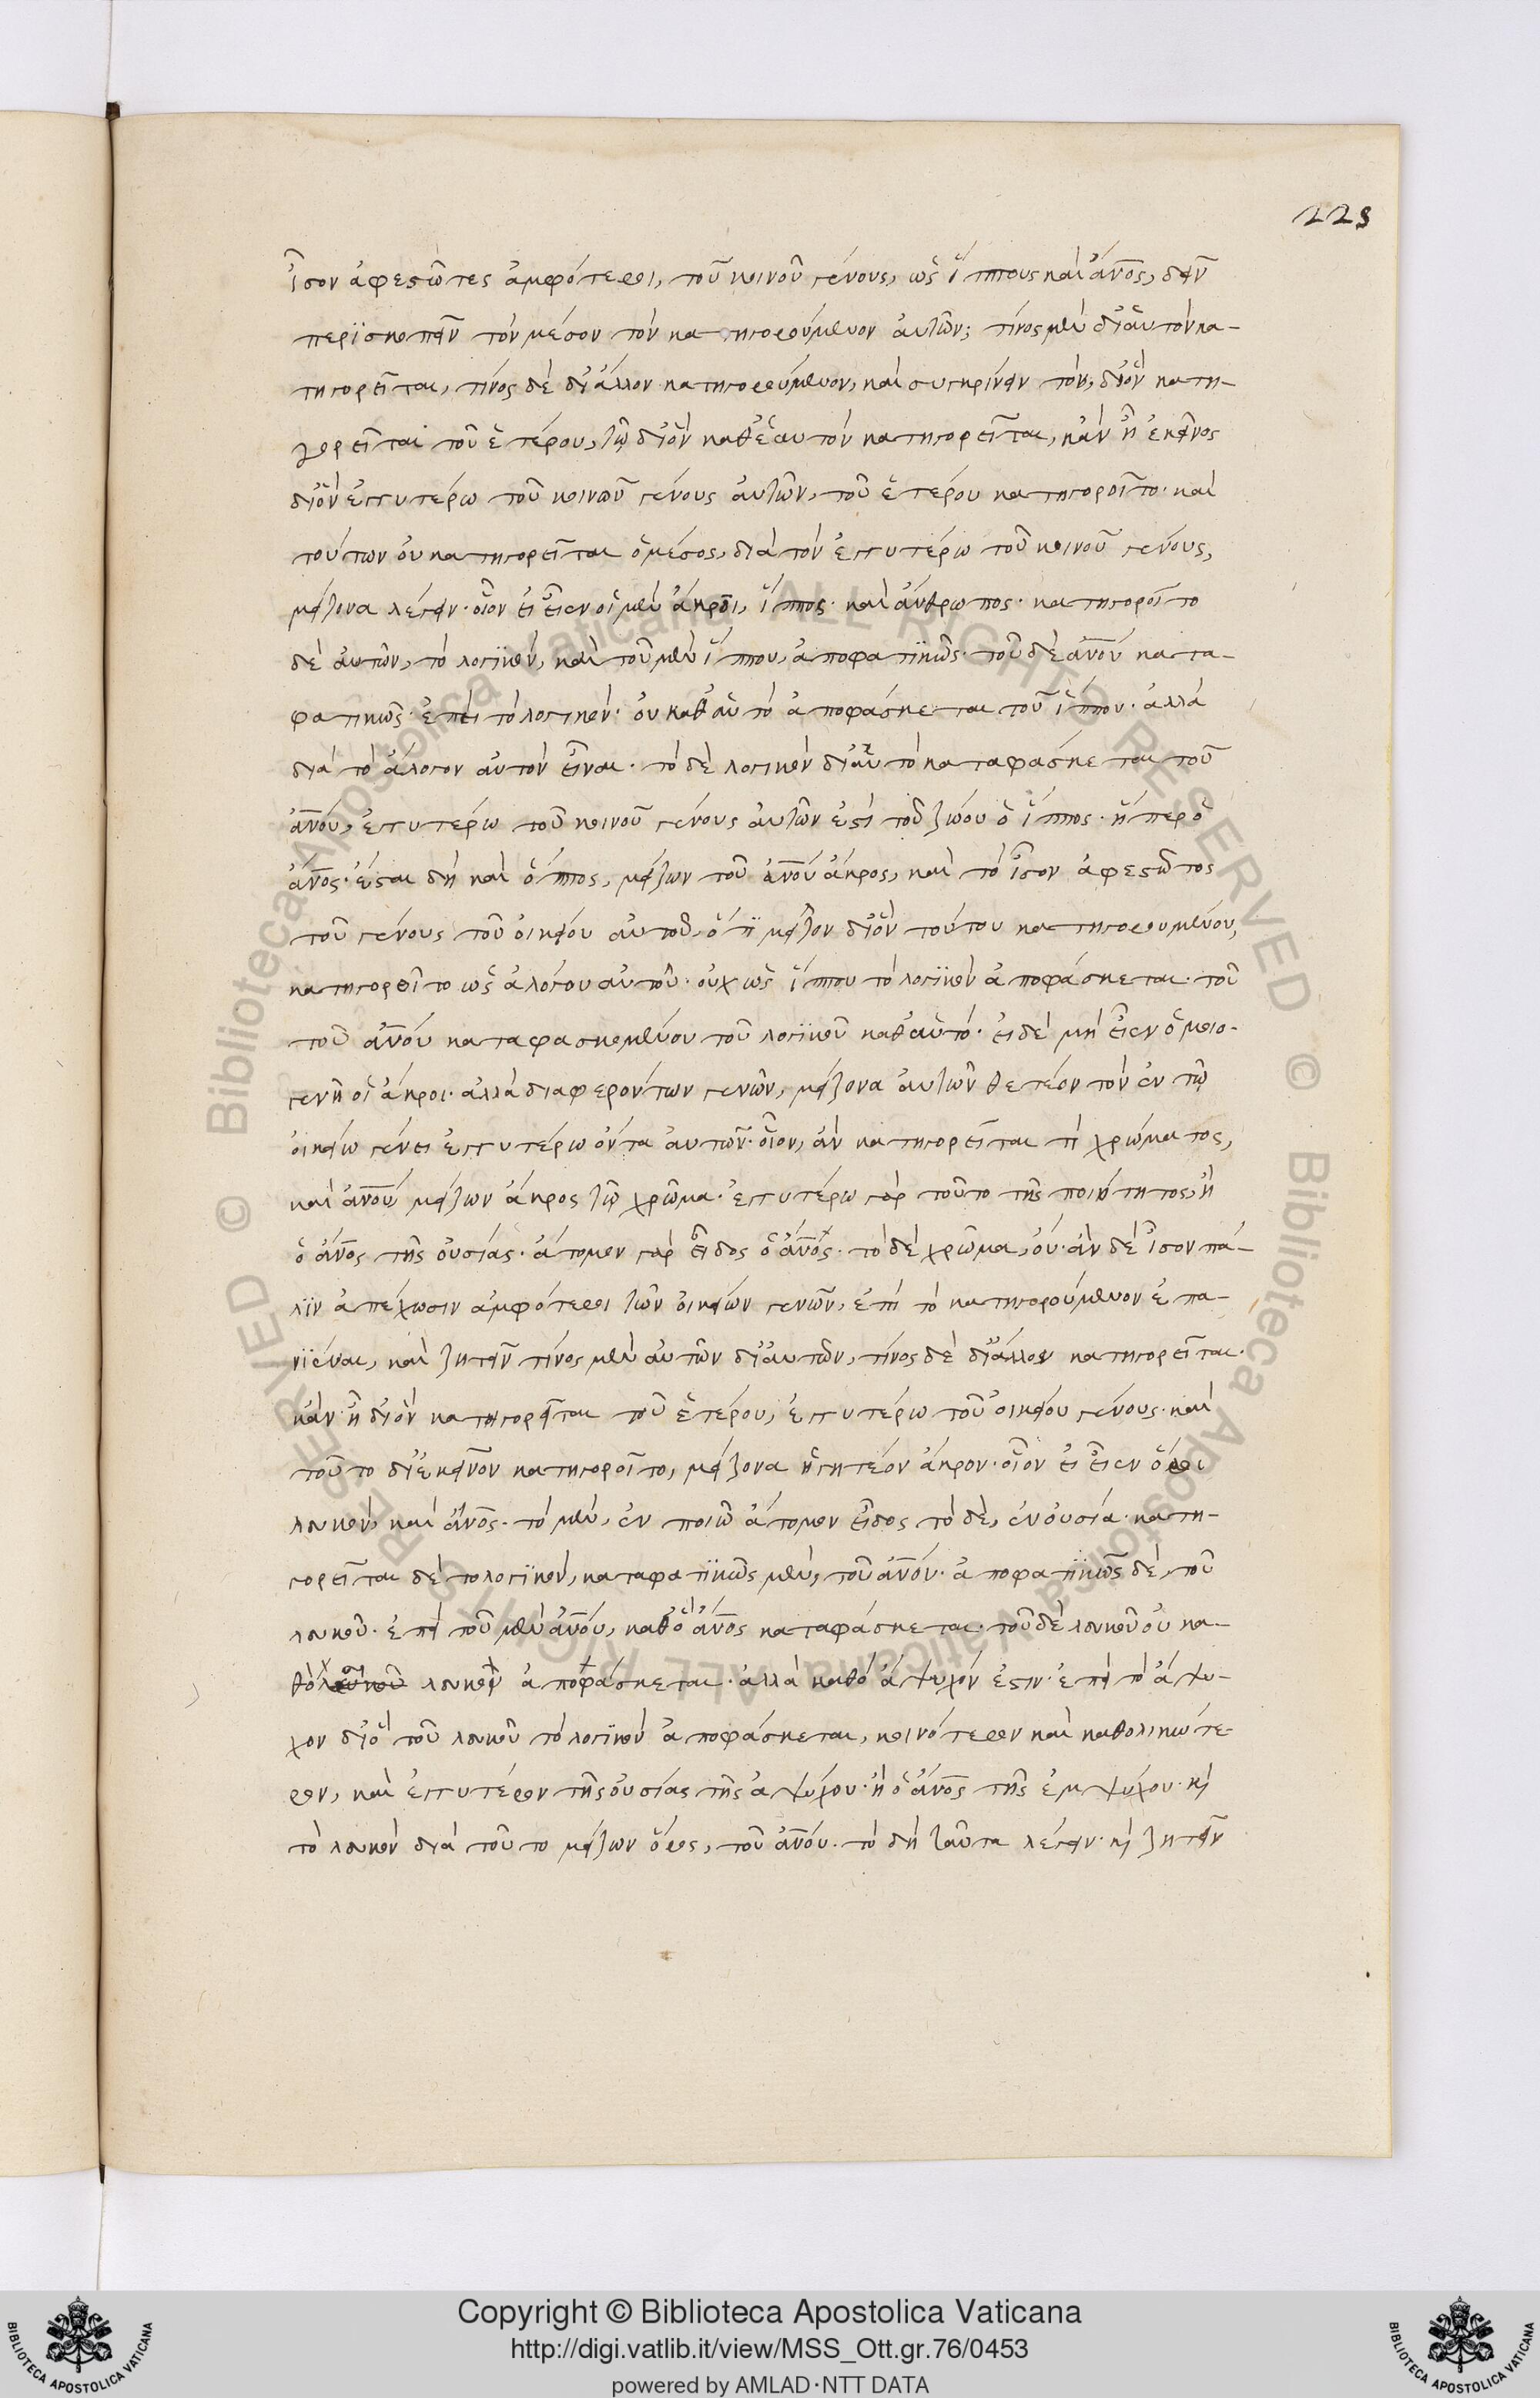 223
ἶσον ἀφεστῶτες ἀμφότεροι, τοῦ κοινοῦ γένους, ὡς ἵππους καὶ ἄνος, δεῖν
περϊσκοπεῖν τὸν μέσον τὸν κατηγορούμενον ἀυτῶν; τίνος μὲν δι' ἁυτὸν κα-
τηγορεῖται, τίνος δὲ δι' ἄλλον κατηγορούμενον, καὶ συγκρίνειν τὸν, δι' ὃν κατη-
γορεῖται τοῦ ἑτέρου, τῶ δι' ὃν καθ' ἑαυτὸν κατηγορεῖται, κἂν ἦ ἐκεῖνος
δι' ὃν ἐγγυτέρω τοῦ κοινοῦ γένους ἀυτῶν, τοῦ ἑτέρου κατηγοροῖτο· καὶ
τούτων ὀυ κατηγορεῖται ὁ μέσος, διὰ τὸν ἐγγυτέρω τοῦ κοινοῦ γένους,
μείζονα λέγειν· οἷον ἐι εἶεν οἱ μὲν ἄκροι, ἵππος· καὶ ἄνθρωπος· κατηγοροῖτο
δὲ ἀυτῶν, τὸ λογϊκὸν, καὶ τοῦ μὲν ἵππου, ἀποφατϊκῶς· τοῦ δὲ ἀνου κατα-
φατικῶς· ἐπεὶ τὸ λογικὸν· ὀυ καθ' ἁυτὸ ἀποφάσκεται τοῦ ἵππου· ἀλλὰ
διὰ τὸ ἄλογον ἀυτὸν εἶναι· τὸ δὲ λογικὸν δι' ἁυτὸ καταφάσκεται τοῦ
ἀνου, ἐγγυτέρω τοῦ κοινοῦ γένους ἀυτῶν ἐστὶ τοῦ ζώου ὁ ἵππος· ἤπερ ὁ
ἄνος· ἔσται δὴ καὶ ὁ ἵππος, μείζων τοῦ ἀνου ἄκρος, καὶ τὸ ἶσον ἀφεστῶτος
τοῦ γένους τοῦ ὀικείου ἀυτοῦ, ὅτϊ μεῖζον δι' ὃν τούτου κατηγορουμένου,
κατηγορεῖτο ὡς ἀλόγου ἀυτοῦ· ὀυχ ὡς ἵππου τὸ λογϊκὸν ἀποφάσκεται· τοῦ
τοῦ ἀνου καταφασκομένου τοῦ λογϊκοῦ καθ' ἁυτό· ἐι δὲ μὴ εἶεν ὁμοιο-
γενῆ οἱ ἄκροι· ἀλλὰ διαφερόντων γενῶν, μείζονα ἀυτῶν θετέον τὸν ἐν τῶ
ὀικείω γένει ἐγγυτέρω ὄντα ἀυτῶν· οἷον, ἂν κατηγορεῖται τὶ χρώματος,
καὶ ἀνου, μείζων ἄκρος τῶ χρῶμα· ἐγγυτέρω γὰρ τοῦτο τῆς ποιότητος, ἢ
ὁ ἄνος τῆς ὀυσίας· ἄτομον γὰρ εἶδος ὁ ἄνος· τὸ δὲ χρῶμα, ὀύ· ἂν δὲ ἶσον πά-
λϊν ἀπέχωσιν ἀμφότεροι τῶν ὀικείων γενῶν, ἐπὶ τὸ κατηγορούμενον ἐπα-
νϊέναι, καὶ ζητεῖν τίνος μὲν ἀυτῶν δι' ἀυτῶν, τίνος δὲ δι' ἄλλον κατηγορεῖται·
κἂν ἦ δι' ὃν κατηγορεῖται τοῦ ἑτέρου, ἐγγυτέρω τοῦ ὀικείου γένους· καὶ
τοῦτο δι' ἐκεῖνον κατηγοροῖτο, μείζονα ἡγητέον ἄκρον· οἷον ἐι εἶεν ὅροι
λευκὸν, καὶ ἄνος· τὸ μὲν, ἐν ποιῶ ἄτομον εἶδος τὸ δὲ, ἐν ὀυσία· κατη-
γορεῖται δὲ τὸ λογϊκὸν, καταφατϊκῶς μὲν, τοῦ ἀνου· ἀποφατϊκῶς δὲ, τοῦ
λευκοῦ· ἐπεὶ τοῦ μὲν ἀνου, καθὸ ἄνος καταφάσκεται· τοῦ δὲ λευκοῦ ὀυ κα-
θὸ λευκὸν ἀποφάσκεται· ἀλλὰ καθὸ ἄψυχόν ἐστιν· ἐπεὶ τὸ ἄψυ-
χον δι' ὃ τοῦ λευκοῦ τὸ λογϊκὸν ἀποφάσκεται, κοινότερον καὶ καθολικώτε-
ρον, καὶ ἐγγυτέρον τῆς ὀυσίας τῆς ἀψύχου· ἢ ὁ ἄνος τῆς ἐμψύχου· κὶ
τὸ λευκὸν διὰ τοῦτο μείζων ὅρος, τοῦ ἀνου· τὸ δὴ ταῦτα λέγειν· κὶ ζητεῖν
Copyright © Biblioteca Apostolica Vaticana
http://digi.vatlib.it/view/MSS_Ott.gr.76/0453
powered by AMLAD·NTT DATA
BIBLIOTECA APOSTOLICA VATICANA
BIBLIOTECA APOSTOLICA VATICANA
© Biblioteca Apostolica Vaticana ALL RIGHTS RESERVED
© Biblioteca Apostolica Vaticana ALL RIGHTS RESERVED